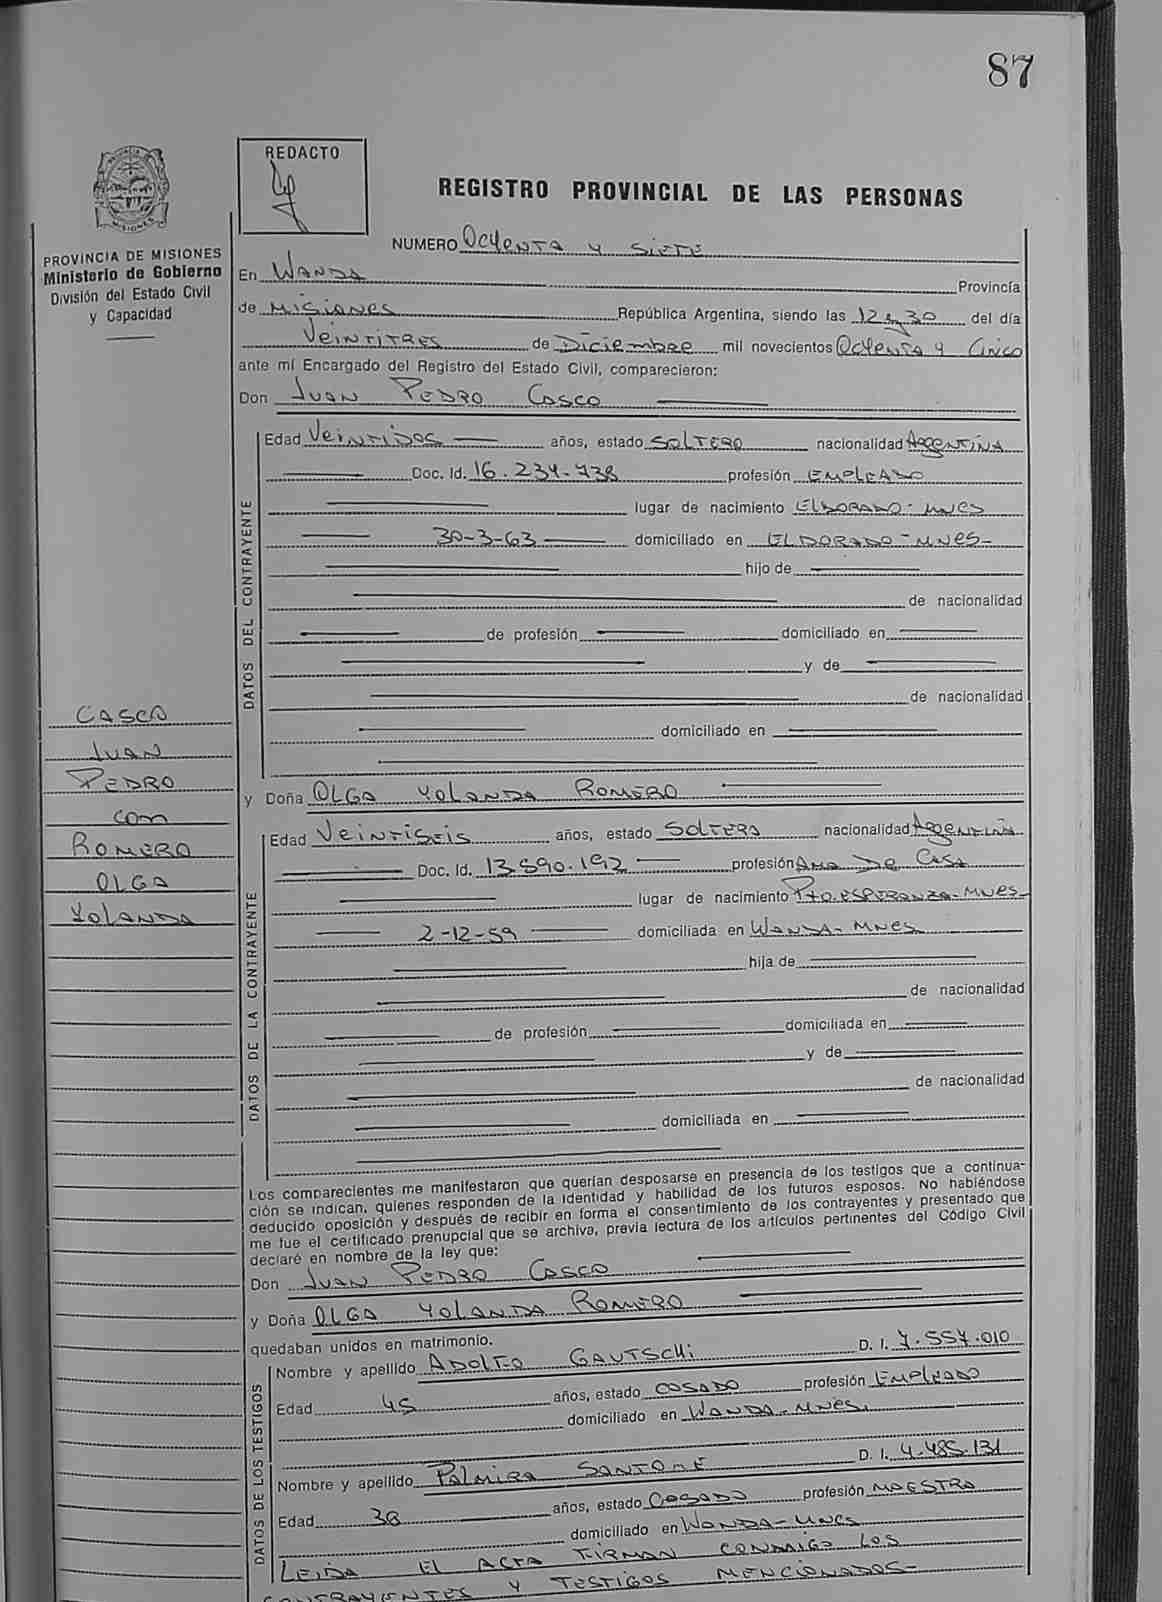 87
REDACTO
REGISTRO PROVINCIAL DE LAS PERSONAS
PROVINCIA DE MISIONES
Ministerio de Gobierno
División del Estado Civil
y Capacidad
NUMERO Ochenta y Siete
En Wanda Provincia
de Misiones República Argentina, siendo las 12 y 30 del día
Veintitres de Diciembre mil novecientos Ochenta y Cinco
ante mí Encargado del Registro del Estado Civil, comparecieron:
Don Juan Pedro Casco
DATOS DEL CONTRAYENTE
Edad Veintidos años, estado Soltero nacionalidad Argentina
Doc. Id. 16.234.738 profesión Empleado
lugar de nacimiento Eldorado-Mnes
30-3-63 domiciliado en Eldorado-Mnes-
hijo de
de nacionalidad
de profesión domiciliado en
y de
de nacionalidad
domiciliado en
Casco
Juan
Pedro
con
Romero
Olga
Yolanda
y Doña Olga Yolanda Romero
DATOS DE LA CONTRAYENTE
Edad Veintiseis años, estado Soltera nacionalidad Argentina
Doc. Id. 13.590.192 profesión Ama De Casa
lugar de nacimiento Pto. Esperanza-Mnes-
2-12-59 domiciliada en Wanda-Mnes
hija de
de nacionalidad
de profesión domiciliada en
y de
de nacionalidad
domiciliada en
Los comparecientes me manifestaron que querían desposarse en presencia de los testigos que a continua-
ción se indican, quienes responden de la identidad y habilidad de los futuros esposos. No habiéndose
deducido oposición y después de recibir en forma el consentimiento de los contrayentes y presentado que
me fue el certificado prenupcial que se archiva, previa lectura de los artículos pertinentes del Código Civil
declaré en nombre de la ley que:
Don Juan Pedro Casco
y Doña Olga Yolanda Romero
quedaban unidos en matrimonio.
DATOS DE LOS TESTIGOS
Nombre y apellido Adolfo Gautschi D. I. 7.557.010
Edad 45 años, estado Casado profesión Empleado
domiciliado en Wanda-Mnes.
Nombre y apellido Palmira Santome D. I. 4.485.131
Edad 38 años, estado Casado profesión Maestra
domiciliado en Wanda-Mnes
Leida el acta firman conmigo los
contrayentes y testigos mencionados-